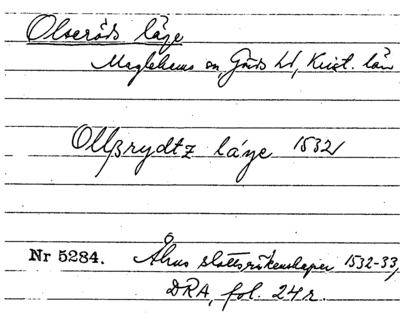 Olseröds läge
Maglehems sn, Gärds hd, Krist. län
Ollsrydtz läye 1532
Nr 5284. Åhus slottsräkenskaper 1532-33,
DRA, fol. 24 r.